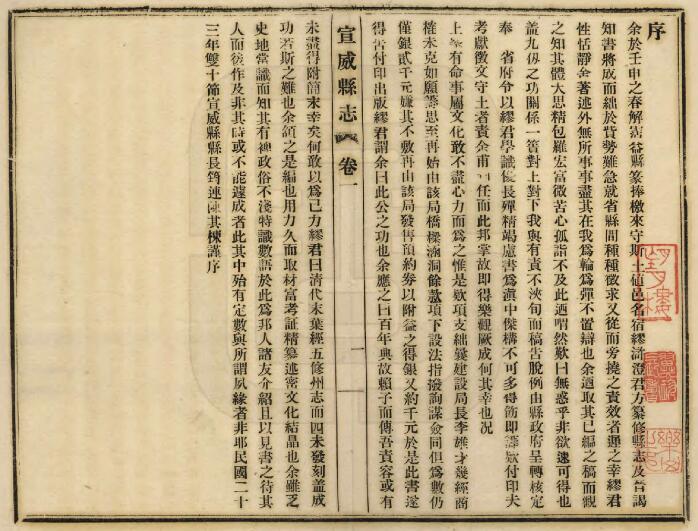 序
余於壬申之春解嵩益縣篆捧檄來守斯土値邑名宿繆澥澄君方纂修縣志及晉謁
知書將成而絀於貲勢難急就省縣間種種徵求又從而旁撓之責效者遲之幸繆君
性恬靜金著述外無所事事盡其在我爲輪爲彈不置辯也余迺取其已編之稿而觀
之知其體大思精包羅宏富微苦心孤詣不及此迺喟然歎曰無惑乎非欲速可得也
蓋九仭之功關係一簣對上對下我與有責不浹旬而稿吿脫例由縣政府呈轉核定
奉 省府令以繆君學識優長殫精竭慮書爲滇中傑構不可多得飭即籌欵付印夫
考獻徵文守土者責余甫卸任而此邦掌故即得樂觀厥成何其幸也况
上峯有命事屬文化敢不盡心力而爲之惟是欵項支絀曩建設局長李雄才幾經商
榷未克如願籌思至再始由該局橋樑涵洞餘欵項下設法指撥詢謀僉同但爲數仍
僅銀貳千元嫌其不敷再由該局發售預約券以附益之得銀又約千元於是此書遂
得吿付印出版繆君謂余曰此公之功也余應之曰百年典故賴子而傳吾責容或有
宣威縣志 卷一
一
未盡得附簡末幸矣何敢以爲己力繆君曰清代末葉經五修州志而四未發刻蓋成
功若斯之難也余頷之是編也用力久而取材富考証精纂述密文化結晶也余雖乏
史地常識而知其有裨政俗不淺特識數語於此爲邦人諸友介紹且以見書之待其
人而後作及非其時或不能遽成者此其中殆有定數與所謂夙緣者非耶民國二十
三年雙十節宣威縣縣長筠連陳其棟謹序